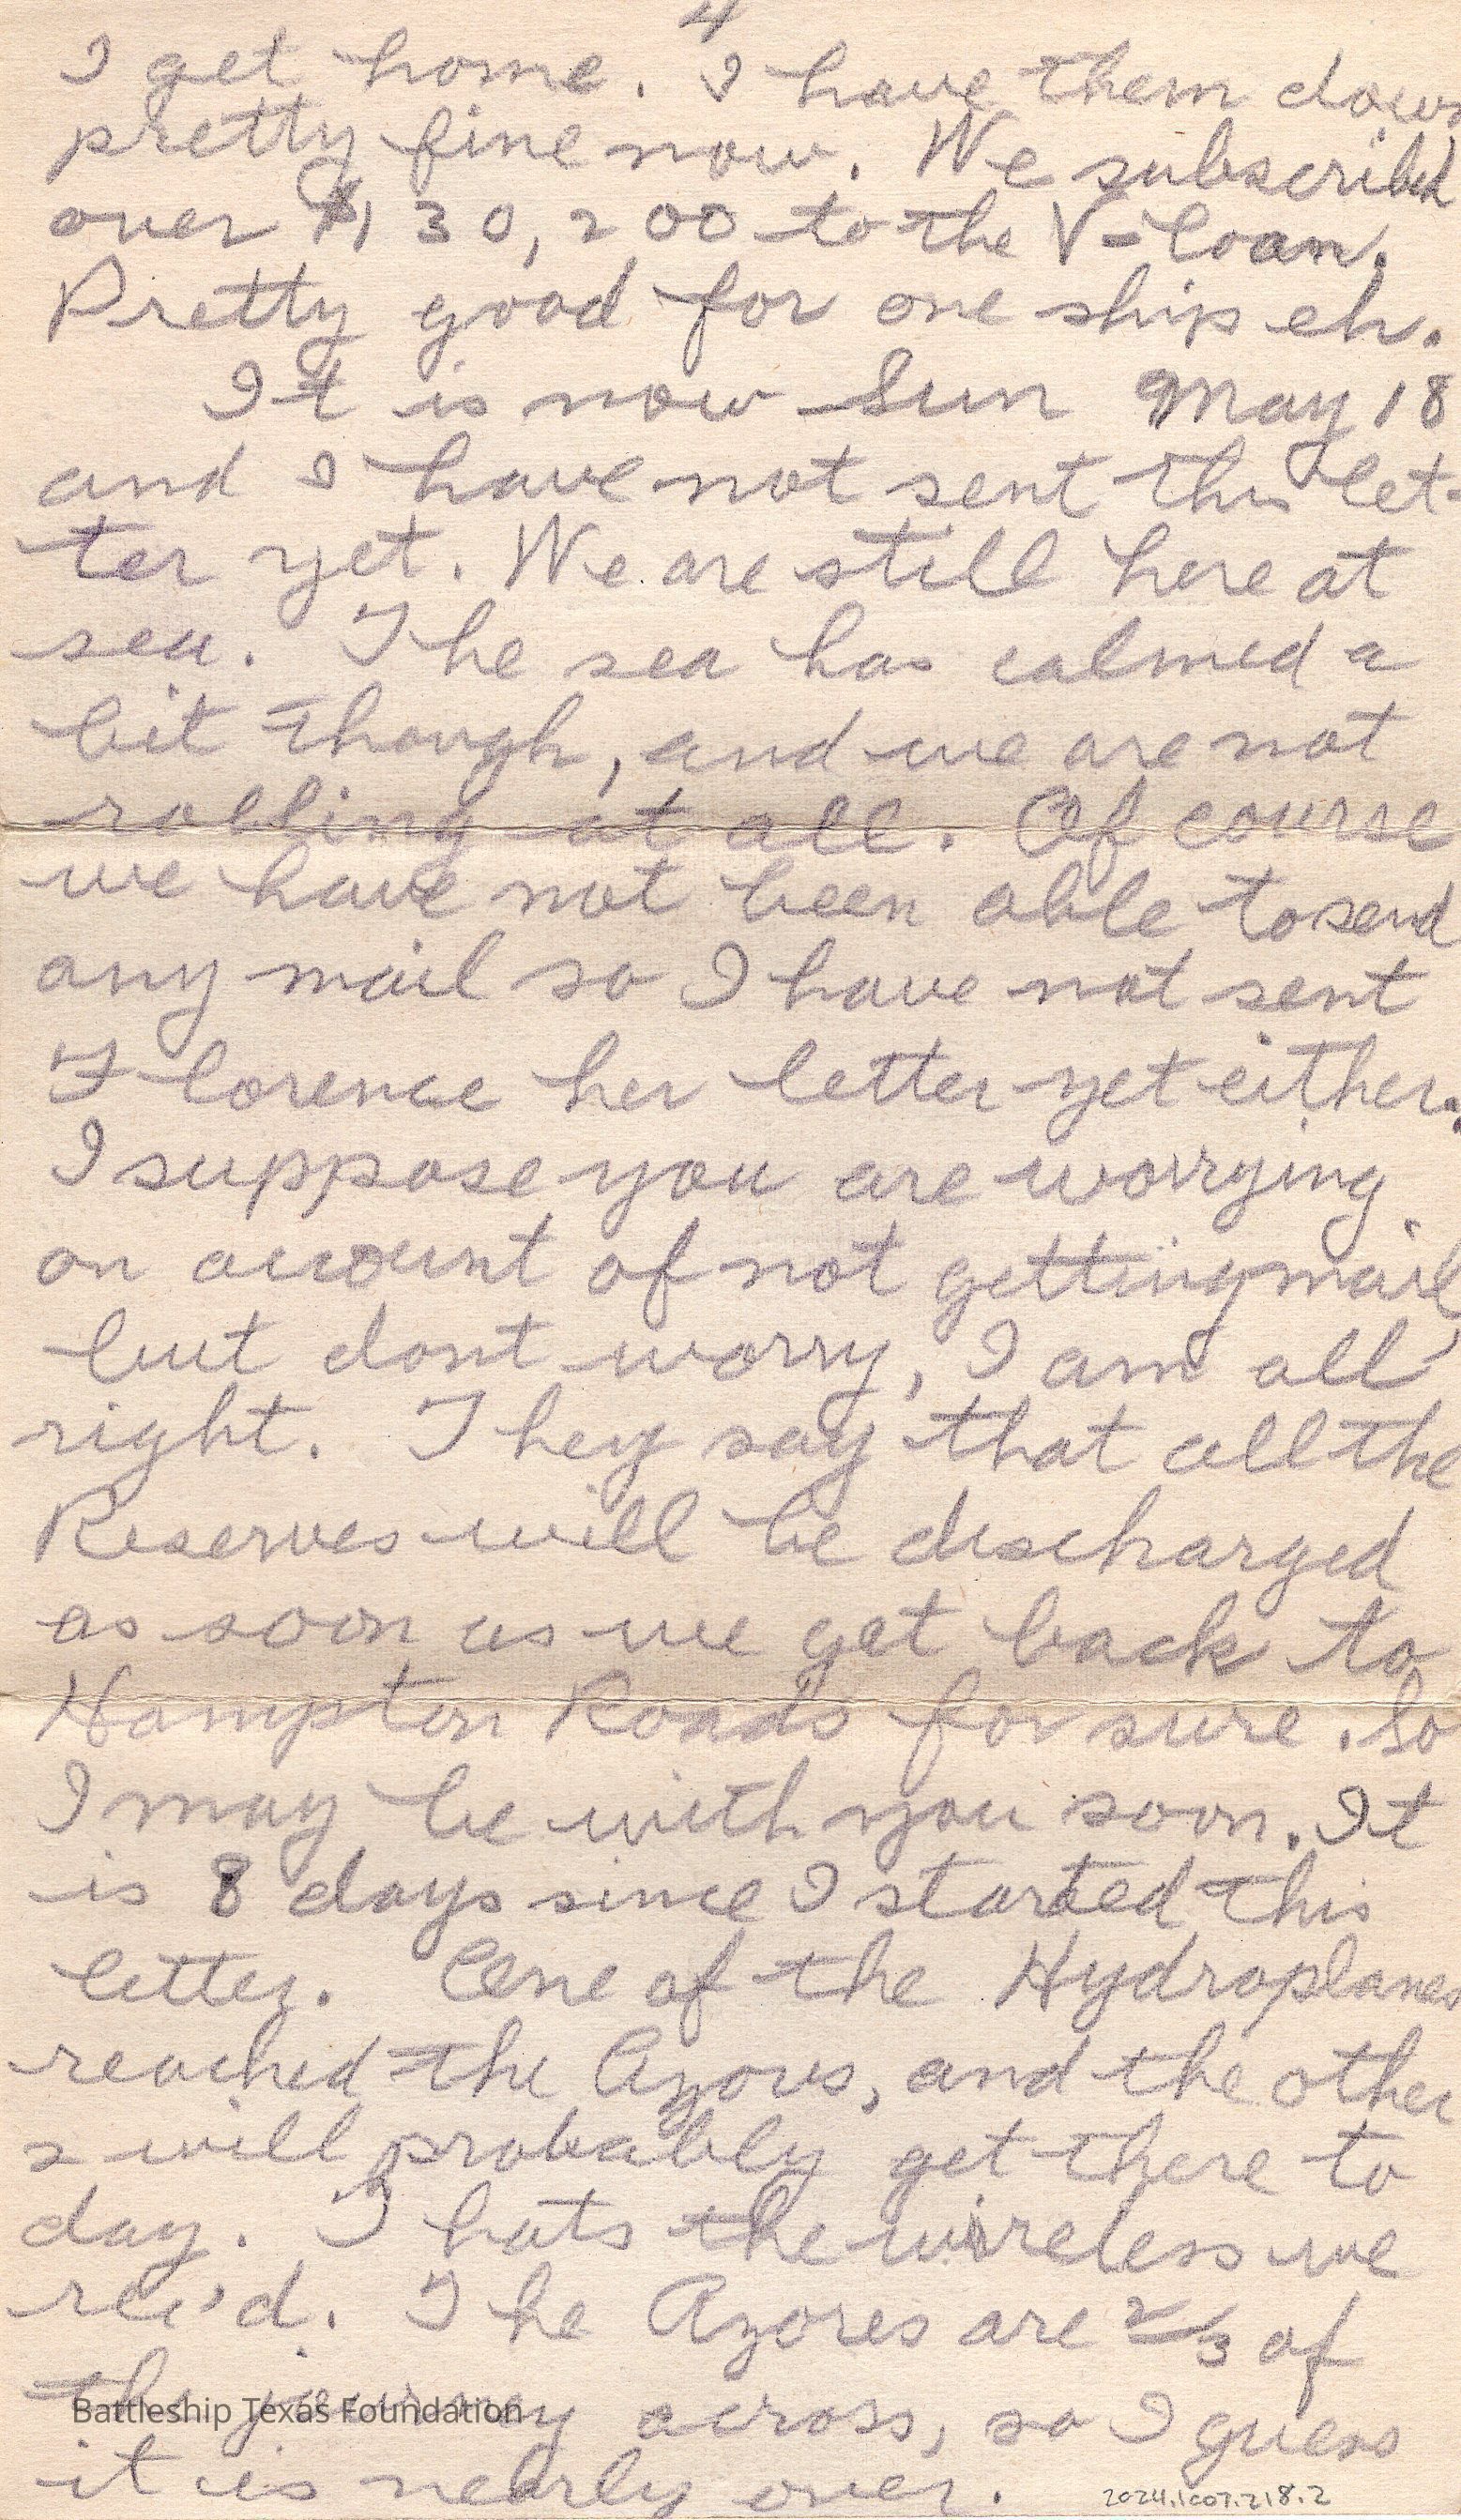 4
I get home. I have them down
pretty fine now. We subscribed
over $130,200 to the V-loan.
Pretty good for one ship eh.
It is now Sun May 18
and I have not sent this let-
ter yet. We are still here at
sea. The sea has calmed a
bit though, and we are not
rolling at all. Of course
we have not been able to send
any mail so I have not sent
Florence her letter yet either.
I suppose you are worrying
on account of not getting mail,
but dont worry, I am all
right. They say that all the
Reserves will be discharged
as soon as we get back to
Hampton Roads for sure. So
I may be with you soon. It
is 8 days since I started this
letter. One of the Hydroplanes
reached the Azors, and the other
2 will probably get there to
day. Thats the wireless we
rec'd. The Azores are 2/3 of
the journey across, so I guess
it is nearly over.
Battleship Texas Foundation
2024.1007.218.2